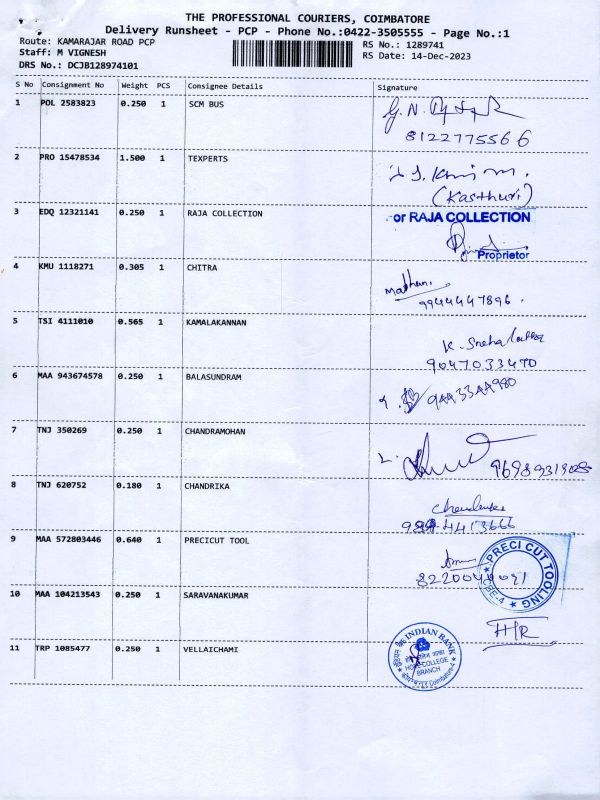 THE PROFESSIONAL COURIERS, COIMBATORE
Delivery Runsheet - PCP - Phone No.:0422-3505555 - Page No.:1
Route: KAMARAJAR ROAD PCP
Staff: M VIGNESH
DRS No.: DCJB128974101
RS No.: 1289741
RS Date: 14-Dec-2023
S No Consignment No Weight PCS Consignee Details Signature
1 POL 2583823 0.250 1 SCM BUS
8122775566
2 PRO 15478534 1.500 1 TEXPERTS
(Kasthuri)
3 EDQ 12321141 0.250 1 RAJA COLLECTION
or RAJA COLLECTION
Proprietor
4 KMU 1118271 0.305 1 CHITRA
9944447896.
5 TSI 4111010 0.565 1 KAMALAKANNAN
9047033470
6 MAA 943674578 0.250 1 BALASUNDRAM
9443344980
7 TNJ 350269 0.250 1 CHANDRAMOHAN
8 TNJ 620752 0.180 1 CHANDRIKA
9 MAA 572803446 0.640 1 PRECICUT TOOL
PRECI CUT TOOLING
10 MAA 104213543 0.250 1 SARAVANAKUMAR
H/R
11 TRP 1085477 0.250 1 VELLAICHAMI
INDIAN BANK
COLLEGE
BRANCH